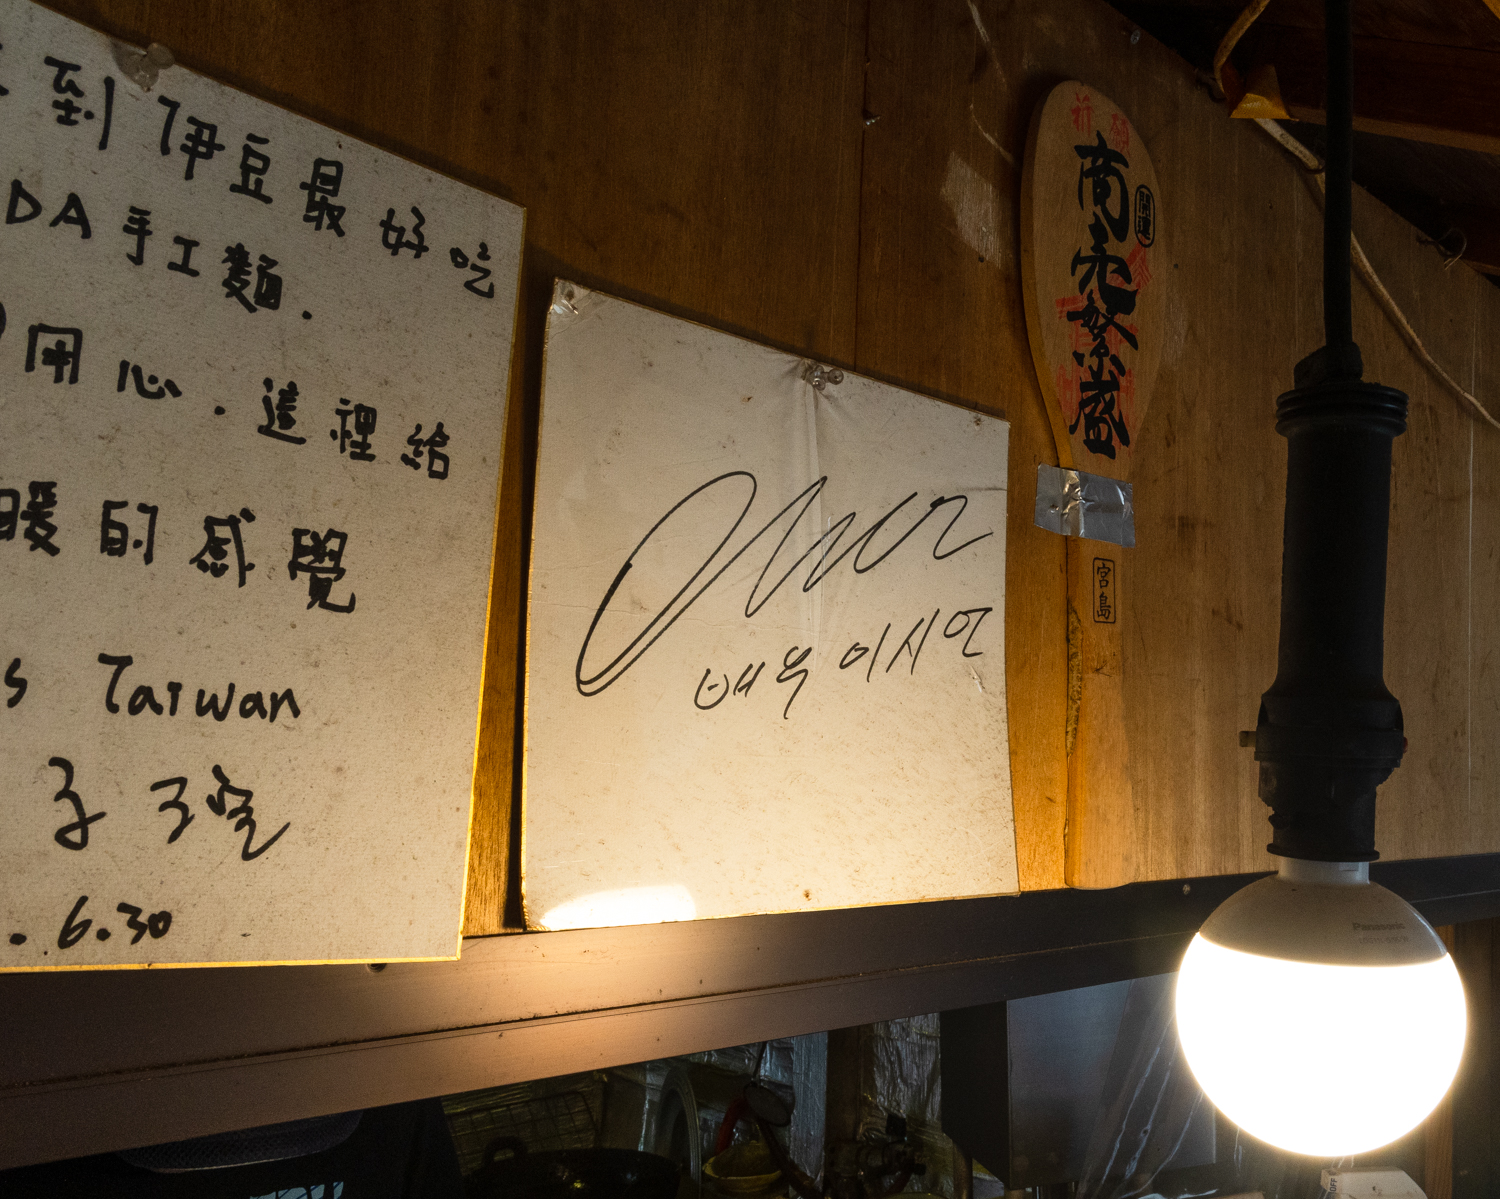 到伊豆最好吃
DA手工麵.
用心.這裡給
暖的感覺
s Taiwan
6.30
배우 이시언
祈願
商売繁盛
開運
宮島
Panasonic
OFF